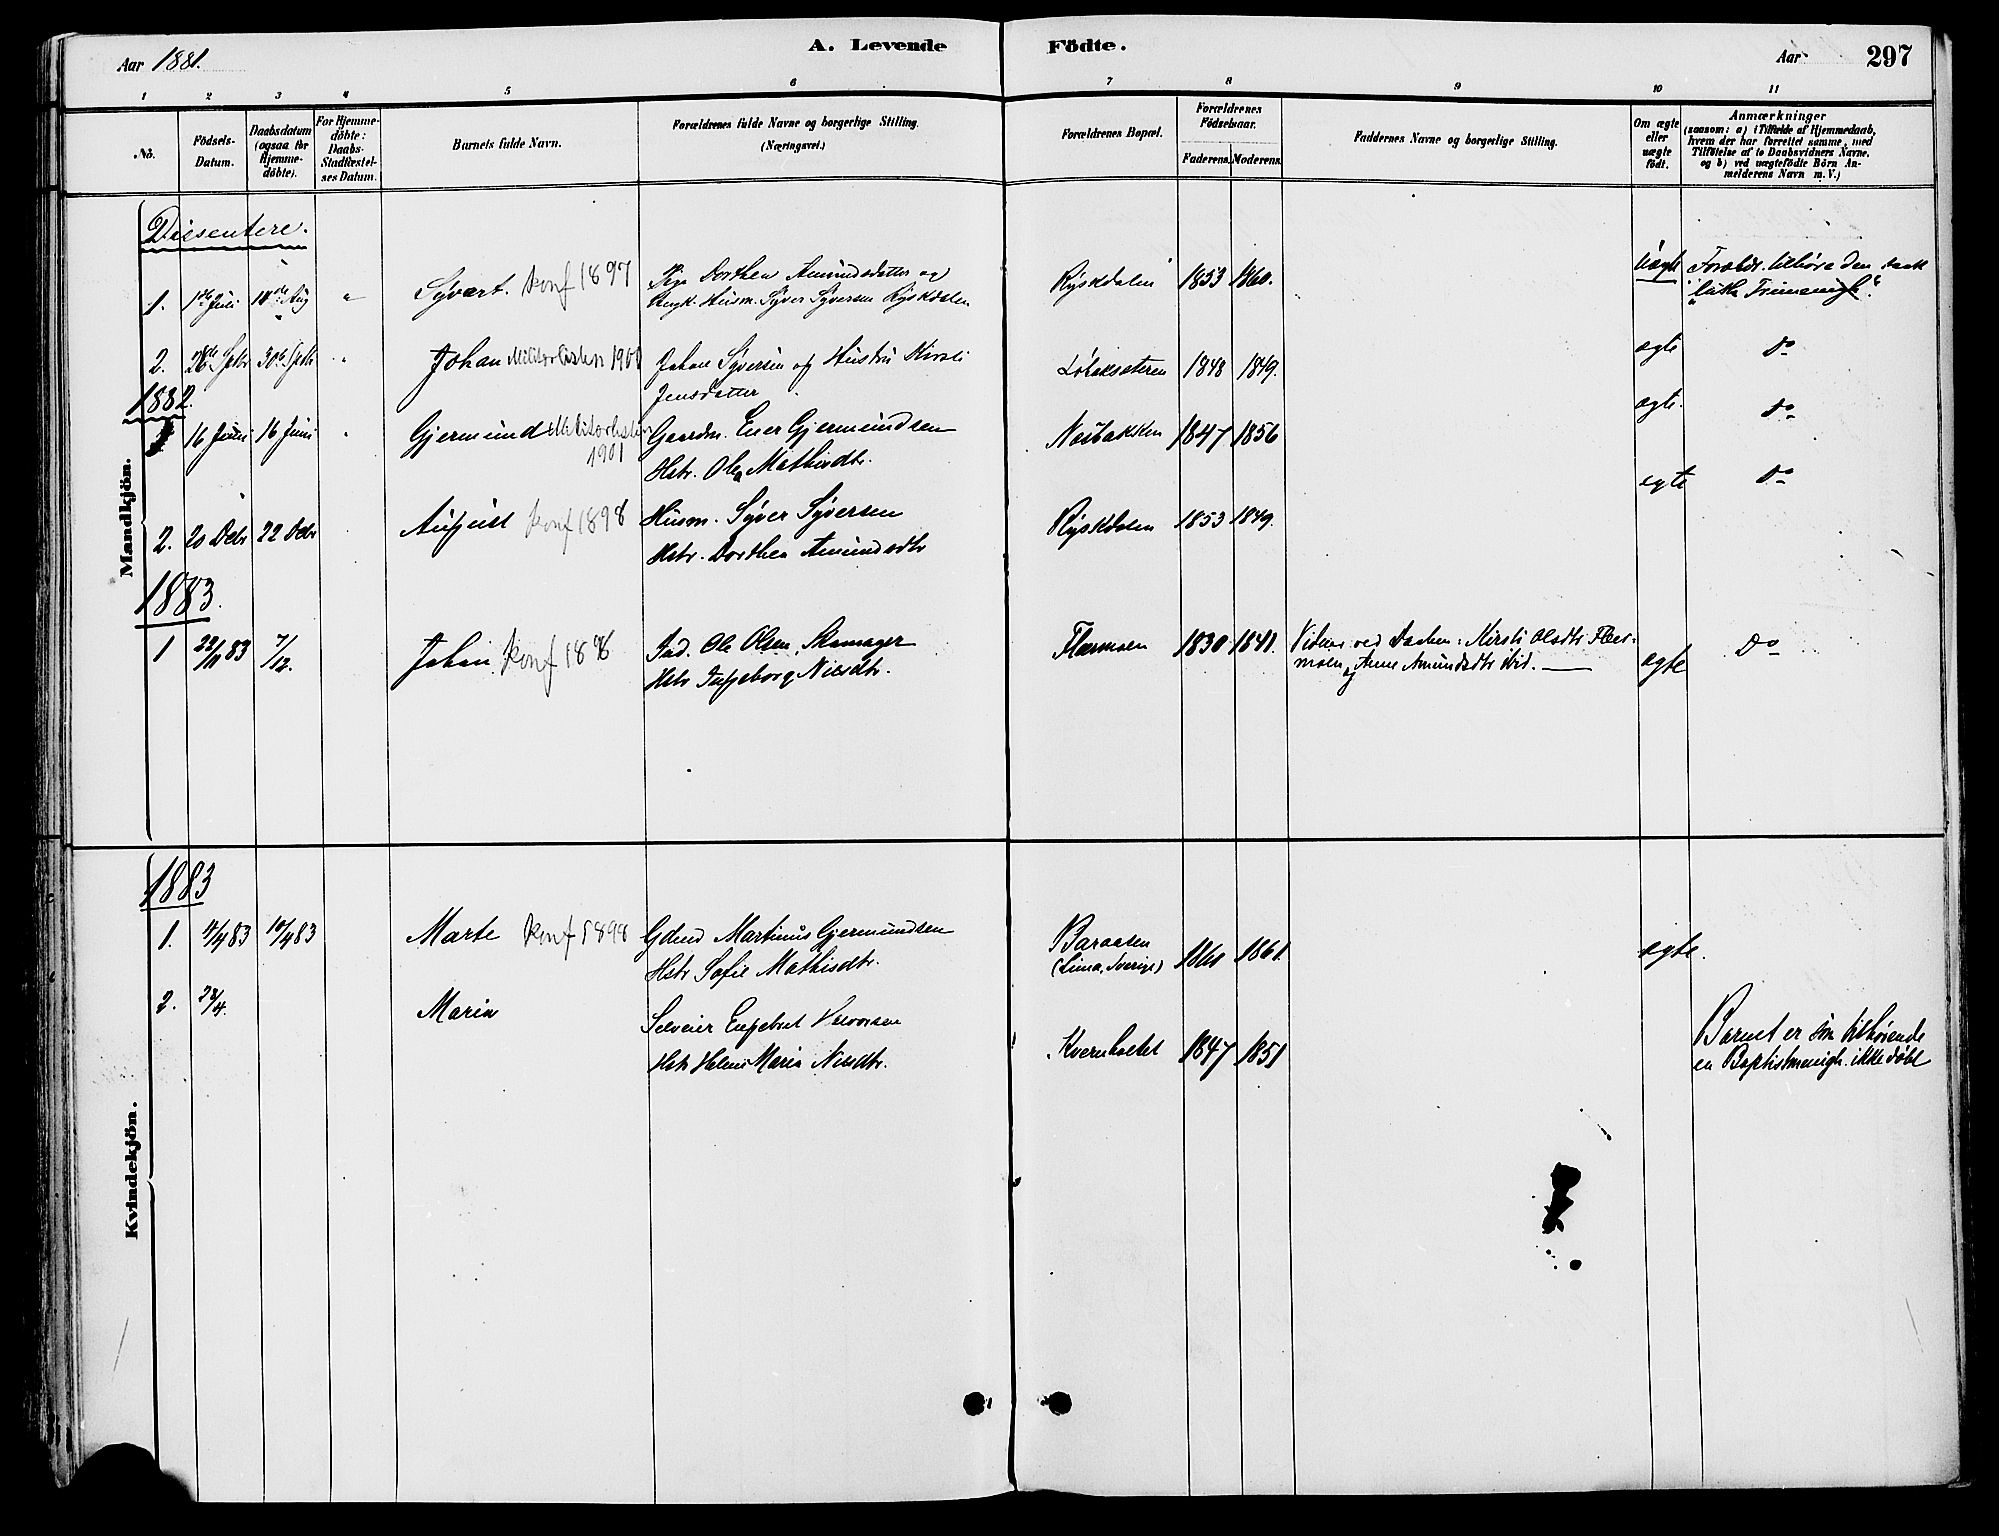 Aar 1881.
A. Levende Födte.
Aar
297
1 2 3 4 5 6 7 8 9 10 11
No.
Födsels-
Datum.
Daabsdatum
(ogsaa for
Hjemme-
döbte).
For Hjemme-
döbte:
Daabs-
Stadfæstel-
ses Datum.
Barnets fulde Navn.
Forældrenes fulde Navne og borgerlige Stilling.
(Næringsvei.)
Forældrenes Bopæl.
Forældrenes
Födselsaar.
Faderens. Moderens.
Faddernes Navne og borgerlige Stilling.
Om ægte
eller
uægte
födt.
Anmærkninger
(saasom: a) i Tilfælde af Hjemmedaab,
hvem der har forrettet samme, med
Tilföielse af to Daabsvidners Navne,
og b) ved uægtefödte Börn An-
melderens Navn m. V.)
Mandkjön.
Dissentere.
1. 1ste Juli 10de Aug " Syvert. konf 1897 Pige Dorthea Amundsdatter og
Husm. Syver Syversen Ryskdalen
Ryskdalen 1853 1860. Uægte Foreldr. tilhøre den
"luth. Frimenigh".
2. 28de Sptbr 30te Sptbr " Johan Militærlisten 1901 Johan Syversen og Hustru Kirsti
Jensdatter
1848 1849. ægte Do
1882.
1 16 Juni 16 Juni " Gjermund Militærlisten
1901
Gaardm. Ener Gjermundsen
Hstr. Olea Mathisdtr.
Næsbakken 1847 1856 ægte. Do
2. 20 Debr 22 Debr August konf 1898 Husm. Syver Syversen
Hstr. Dorthea Amundsdtr
Ryskdalen 1853 1849. ægte Do
1883.
1 22/11 83 7/12. Johan konf 1898 Ind. Ole Olsen, Skomager
Hstr Ingeborg Nilsdtr.
Flermoen 1830 1841. Vidner ved Daaben: Kirsti Olsdtr Fler-
moen og Anne Amundsdtr ibid. ægte Do
Kvindekjön.
1883
1. 4/4 83 10/4 83 Marte konf 1898 Martinus Gjermundsen
Hstr Sofie Mathisdtr.
Baraasen
(Lima, Sverige)
1860 1861 ægte.
2. 23/4. Maria Selveier Engebret Halvorsen
Hstr Helene Maria Nilsdtr.
Kvernholtet 1847 1851 Barnet er som tilhørende
en Baptistmenigh. ikke døbt